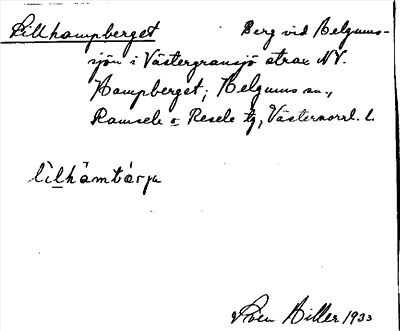 Lillhampberget Berg vid Helgums-
sjön i Västergransjö strax NV.
Hampberget; Helgums sn.,
Ramsele o Resele tg, Västernorrl. l.
lìlhämtbärja
Sven Hiller 1933